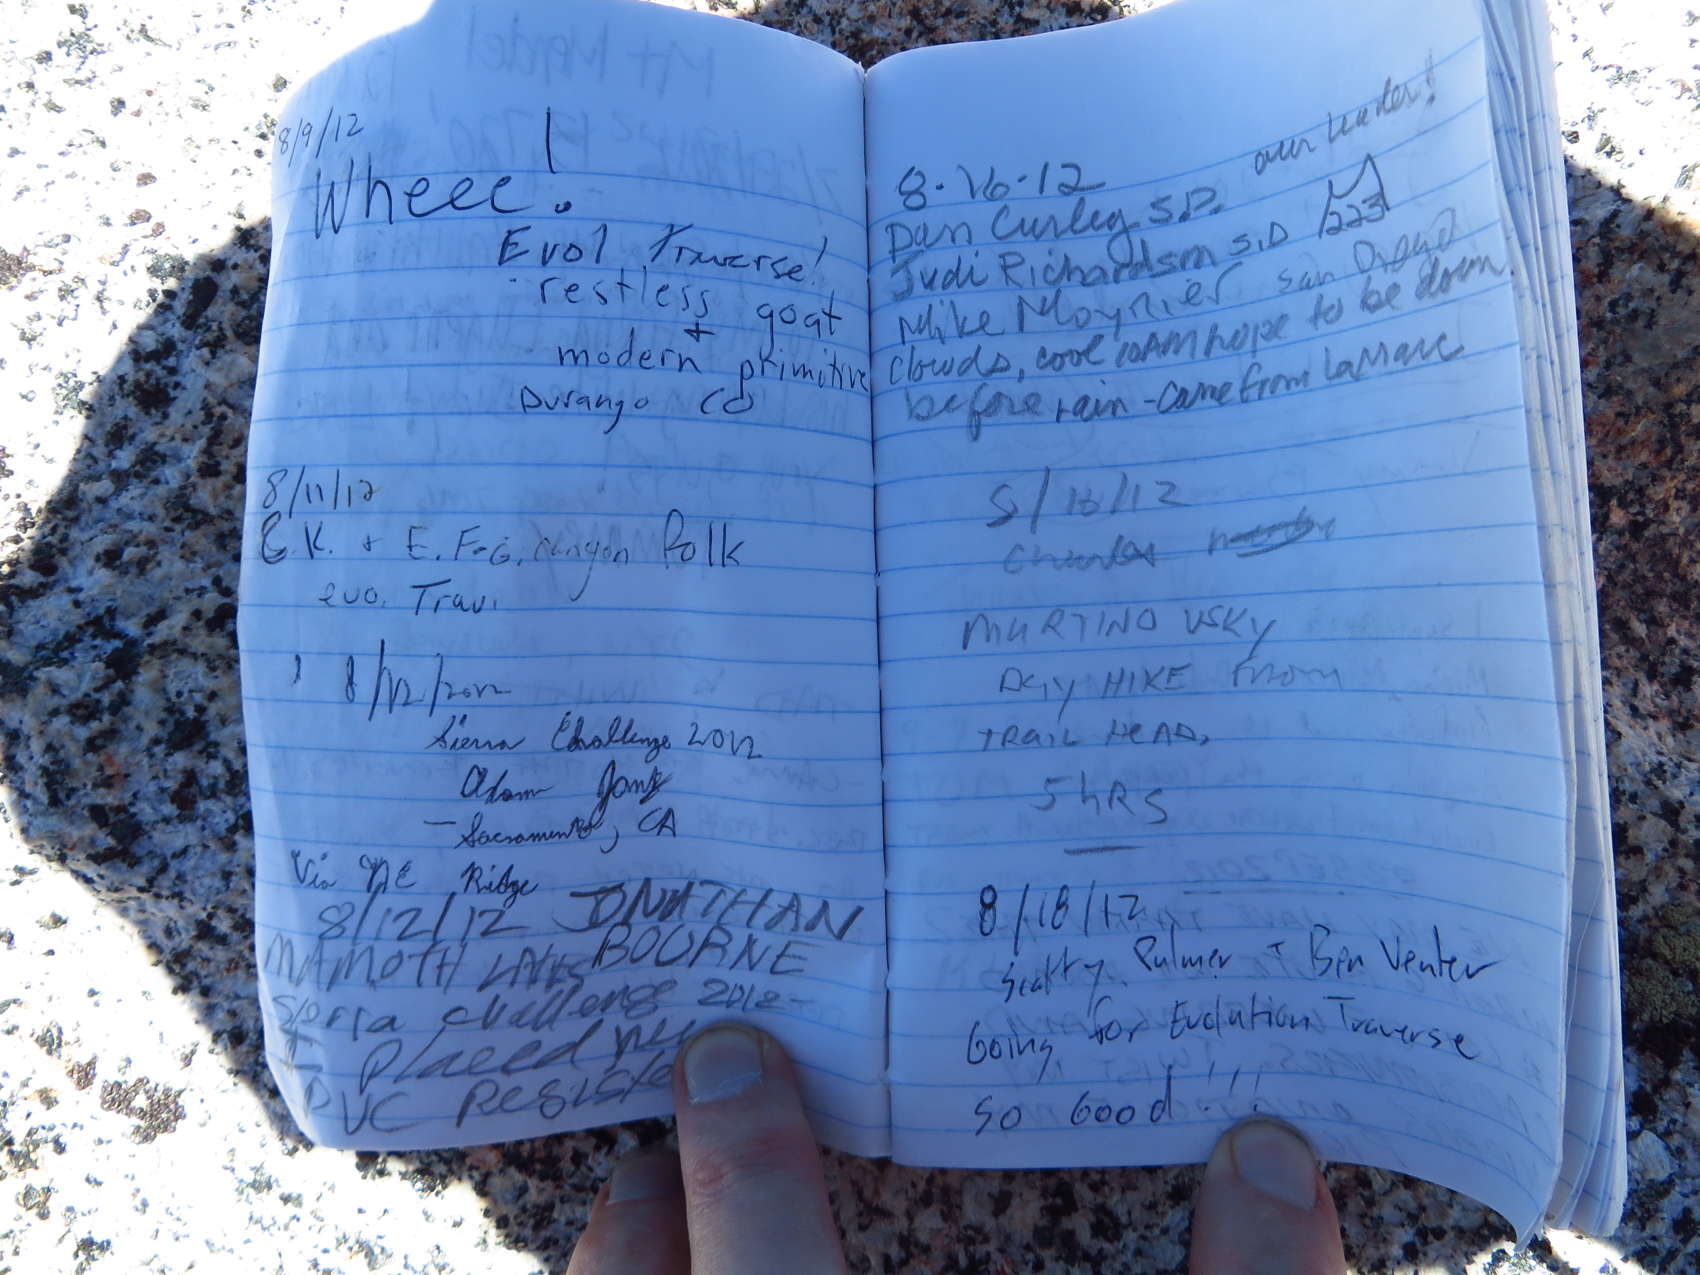 8/9/12
Wheee!
Evol Traverse!
restless goat
+
modern primitive
Durango CO
8/11/12
E.K. + E. F-G. Canyon Folk
evo. Trav.
8/12/2012
Sierra Challenge 2012
Adam Jantz
- Sacramento, CA
Via NE Ridge
8/12/12 JONATHAN
MAMOTH LAKES BOURNE
Sierra challenge 2012
Placed
PVC
our leader!
8-16-12
Dan Curley S.D.
Judi Richardson S.D 223
Mike Moynier San Diego
clouds, cool 10AM hope to be down
before rain - came from LaMarc
8/16/12
Charles
MARTINOVSKY
DAY HIKE FROM
TRAIL HEAD,
5 hRS
8/18/12
Scotty Palmer + Ben Venter
Going for Evolution Traverse
So Good!!!